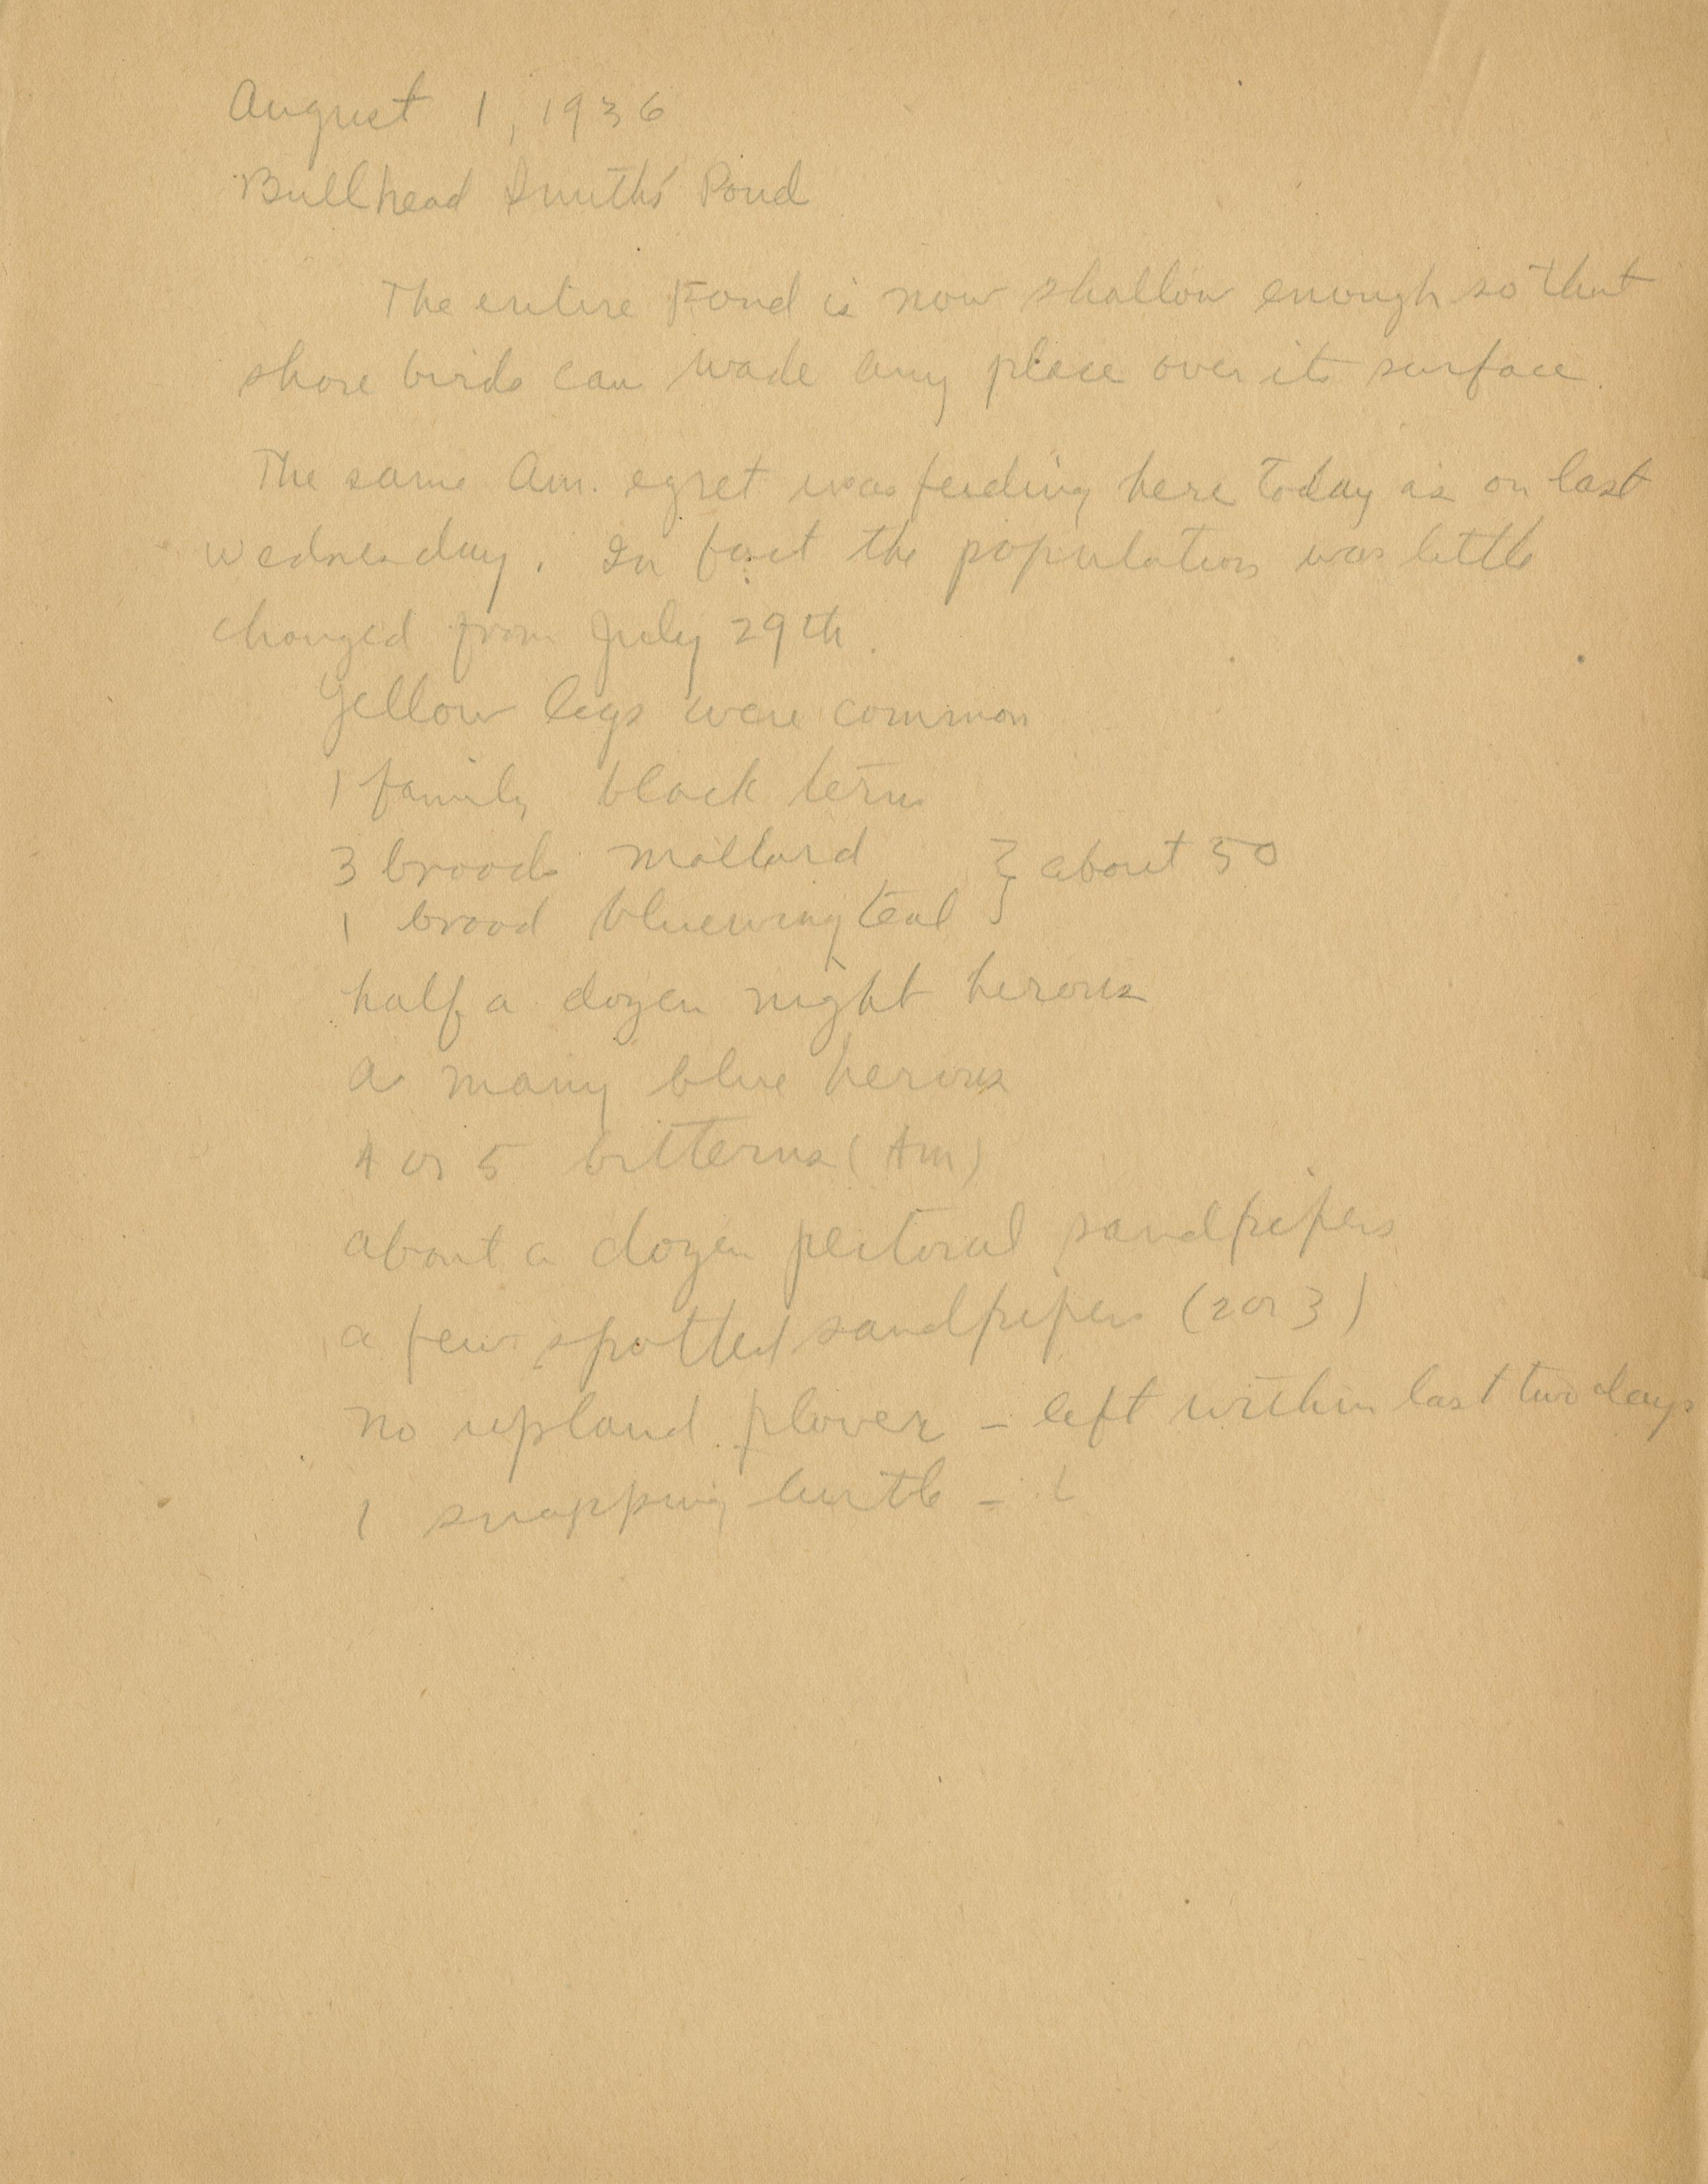 August 1, 1936
Bullhead Smith's Pond
The entire Pond is now shallow enough so that
shore birds can wade any place over its surface.
The same Am. egret was feeding here today as on last
wednesday. In fact the population was little
changed from July 29th.
Yellow legs were common
1 family black terns
3 broods mallard } about 50
1 brood bluewing teal }
half a dozen night herons
as many blue herons
4 or 5 bitterns (Am)
about a dozen pectoral sandpipers
a few spotted sandpipers (2 or 3)
no upland plover - left within last two days
1 snapping turtle -